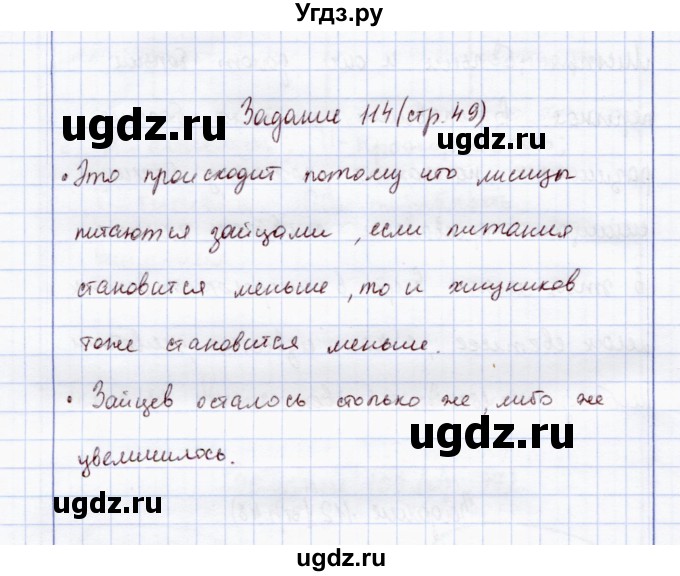 Угдз.ру
Задание 114 (стр. 49)
• Это происходит потому что лисицы
питаются зайцами, если питания
становится меньше, то и хищников
тоже становится меньше.
• Зайцев осталось столько же, либо же
увеличилось.
ugdz.ru
ugdz.ru
ugdz.ru
ugdz.ru
ugdz.ru